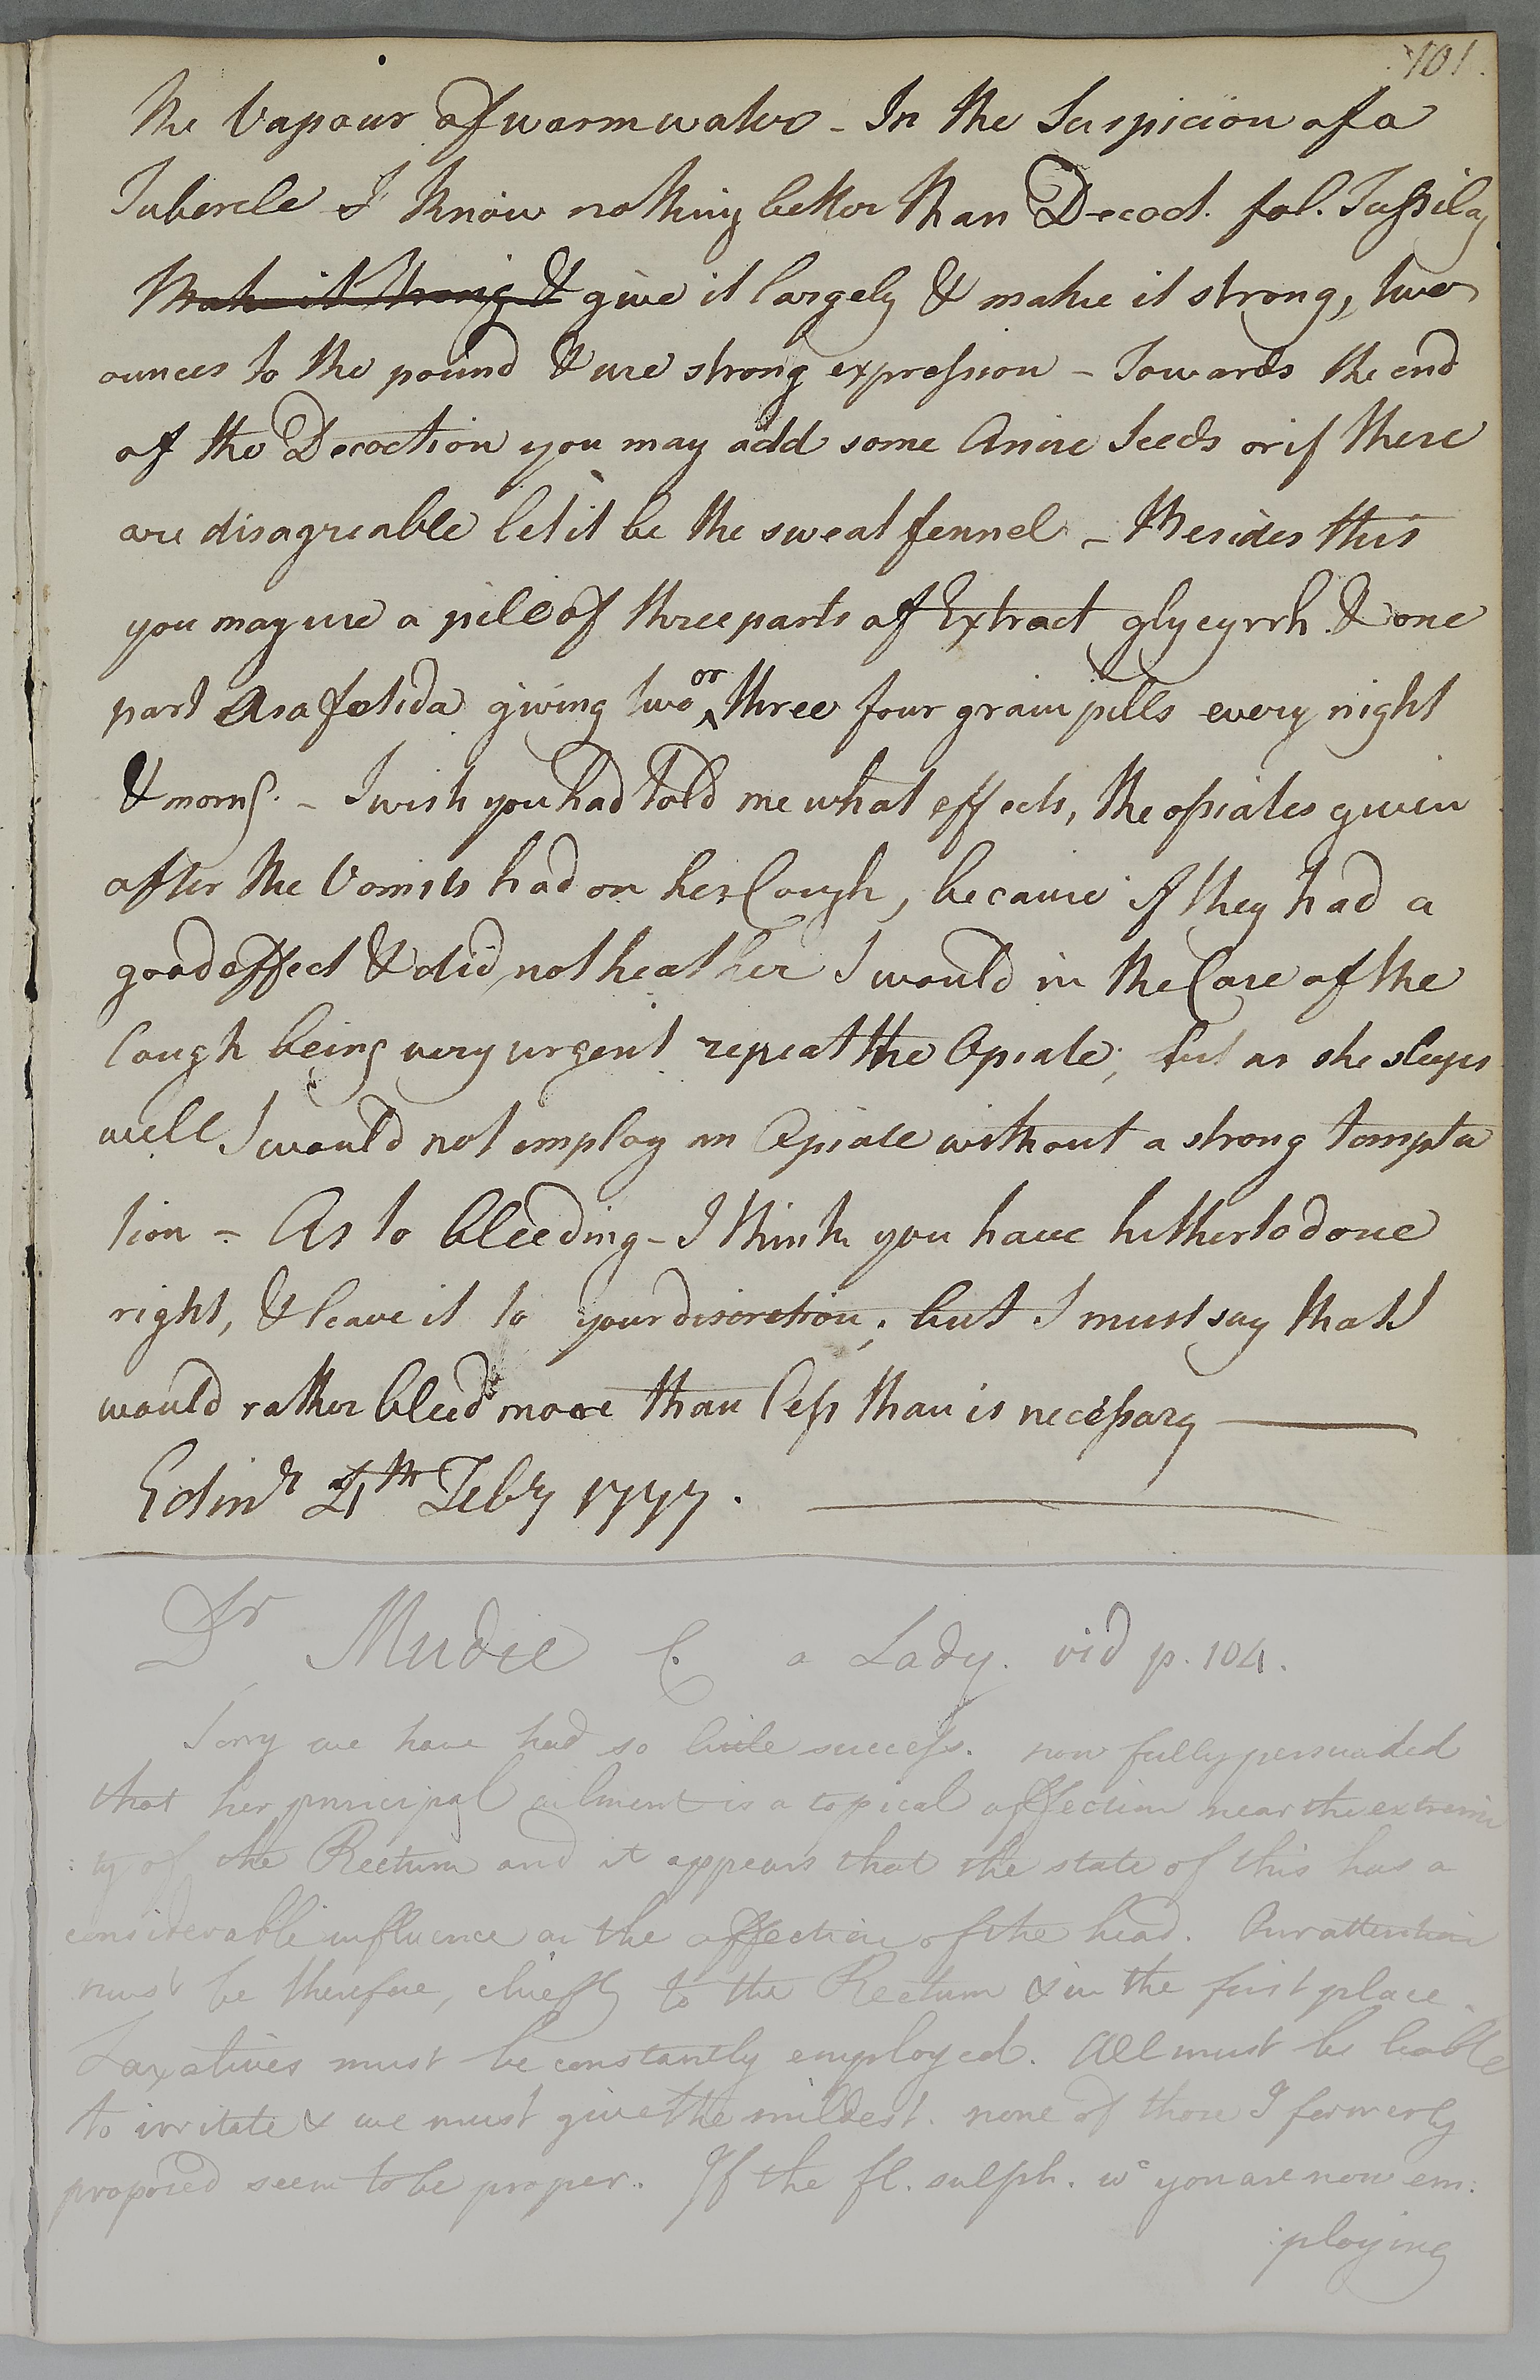 101.
the Vapour of warm water - In the Suspicion of a
Tubercle I know nothing better than Decoct. fol. Tussilag
Make it strong & give it largely & make it strong, two
ounces to the pound & use strong expression - Towards the end
of the Decoction you may add some Anise Seeds or if these
are disagreable let it be the sweat fennel - Besides this
you may use a pill of three parts of Extract glycyrrh. & one
part Asafetida giving two or three four grain pills every night
& morng. - I wish you had told me what effects, the opiates given
after the Vomits had on her Cough, because if they had a
good effect & did not heat her I would in the Case of the
Cough being very urgent repeat the Opiate; but as she sleeps
well I would not employ an Opiate without a strong tempta
tion - As to bleeding - I think you have hitherto done
right, & leave it to your discretion; but I must say that I
would rather bleed more than less than is necessary
Edinr 4th Febry 1777.
Dr Mudie C. a Lady. vid p. 104.
Sorry we have had so little success. now fully persuaded
that her principal ailment is a topical affection near the extremi
:ty of the Rectum and it appears that the state of this has a
considerable influence on the affection of the head. Our attention
must be therefore, chiefly to the Rectum & in the first place.
Laxatives must be constantly employed. All must be liable
to irritate & we must give the mildest. none of those I formerly
proposed seem to be proper. If the fl. sulph. wc you are now em:
:ploying